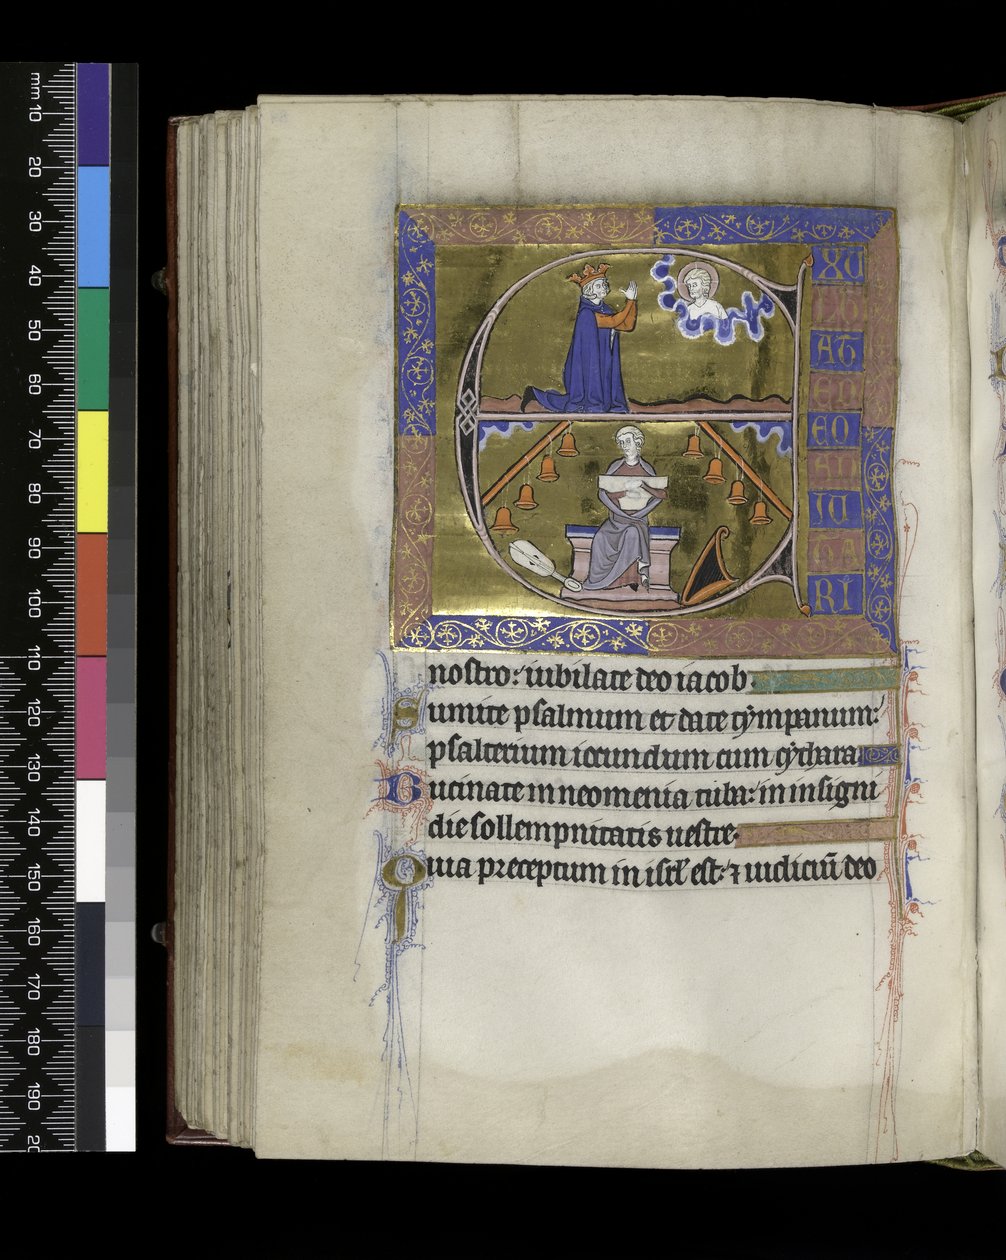 mm 10 20 30 40 50 60 70 80 90 100 110 120 130 140 150 160 170 180 190
EXU
LT
AT
E D
EO
AD
IU
TA
RI
nostro: iubilate deo iacob.
Sumite psalmum et date tympanum:
psalterium iocundum cum cythara
Bucinate in neomenia tuba: in insigni
die sollempnitatis uestre.
Quia preceptum in isrl' est: ⁊ iudiciū deo